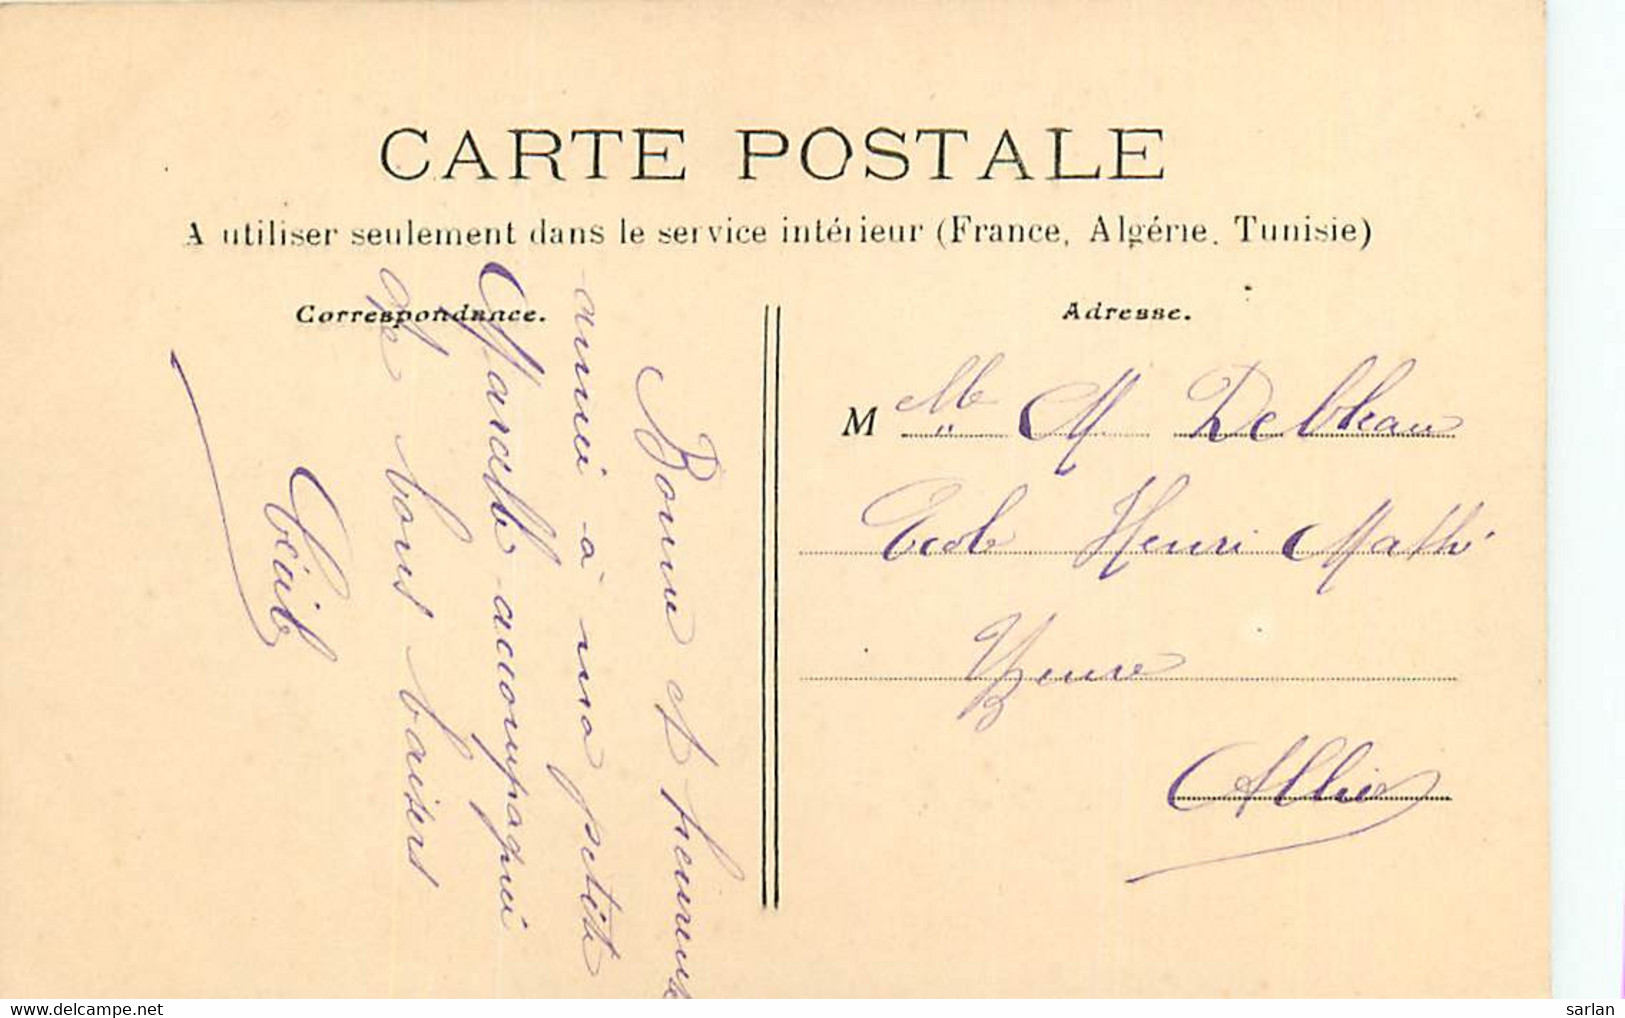 CARTE POSTALE
A utiliser seulement dans le service intérieur (France, Algérie, Tunisie)
Correspondance.
Bonne et heureuse
année à ma petite
Marcelle accompagnée
de bons baisers
Adresse.
M elle M Debleau
Ecole Henri Mathé
Yzeure
Allier
www.delcampe.net
sarlan